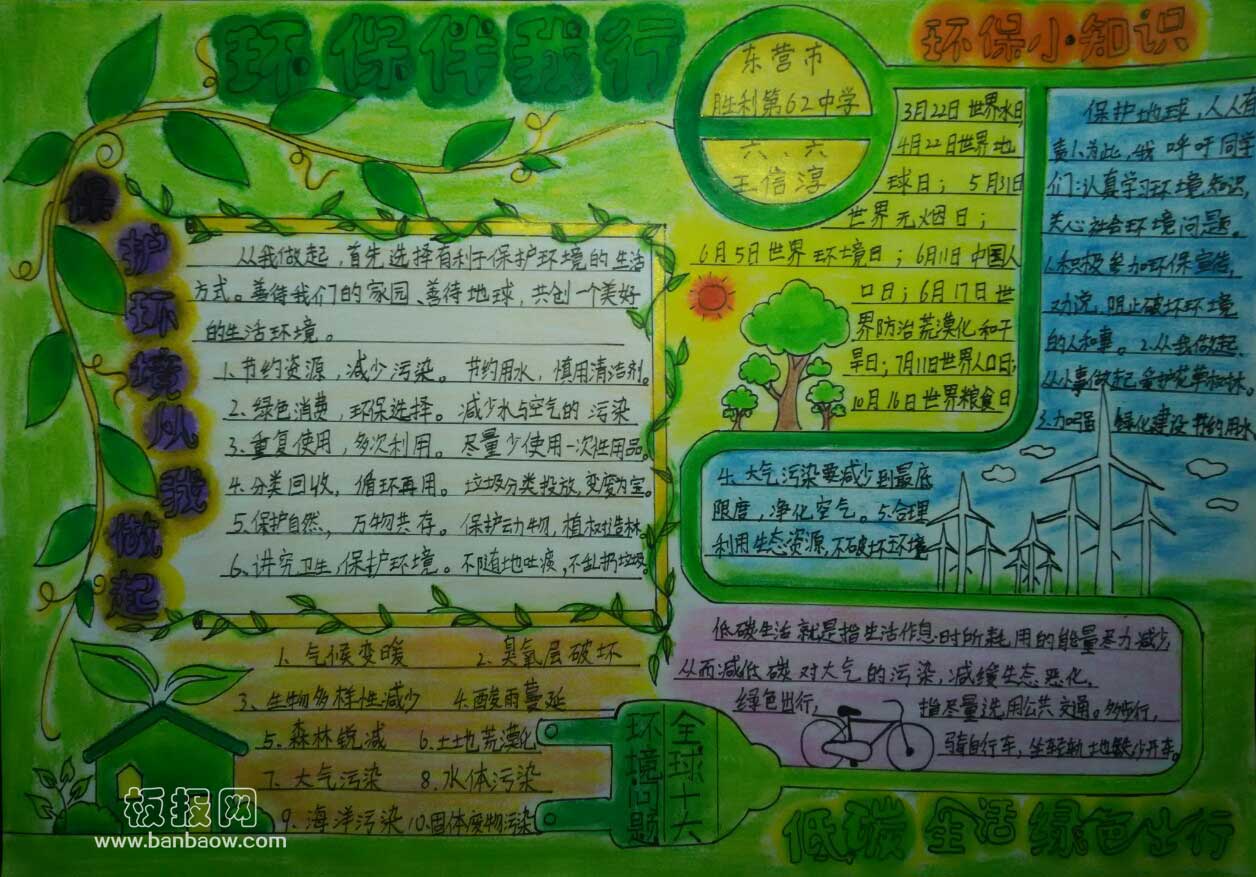 环保伴我行
环保小知识
东营市
胜利第62中学
六、六
王信淳
保护环境从我做起
从我做起,首先选择有利于保护环境的生活
方式。善待我们的家园、善待地球,共创一个美好
的生活环境。
1、节约资源,减少污染。节约用水,慎用清洁剂。
2、绿色消费,环保选择。减少水与空气的污染
3、重复使用,多次利用。尽量少使用一次性用品。
4、分类回收,循环再用。垃圾分类投放,变废为宝。
5、保护自然,万物共存。保护动物,植树造林
6、讲究卫生,保护环境。不随地吐痰,不乱扔垃圾。
3月22日世界水日
4月22日世界地
球日;5月31日
世界无烟日;
6月5日世界环境日;6月11日中国人
口日;6月17日世
界防治荒漠化和干
旱日;7月11日世界人口日;
10月16日世界粮食日
保护地球,人人
责!为此,我呼吁同学
们:认真学习环境知识,
关心社会环境问题。
1.积极参加环保宣传,
劝说,阻止破坏环境
的人和事。2.从我做起,
从小事做起,爱护花草树木。
3.加强绿化建设节约用水
4.大气污染要减少到最底
限度,净化空气。5.合理
利用生态资源,不破坏环境
低碳生活就是指生活作息时所耗用的能量尽力减少,
从而减低碳对大气的污染,减缓生态恶化,
绿色出行,指尽量选用公共交通。多步行,
骑自行车,坐轻轨地铁少开车。
1、气候变暖 2、臭氧层破坏
3、生物多样性减少 4.酸雨蔓延
5、森林锐减 6.土地荒漠化
7、大气污染 8.水体污染
9、海洋污染 10.固体废物污染
全球十大
环境问题
低碳生活绿色出行
板报网
www.banbaow.com